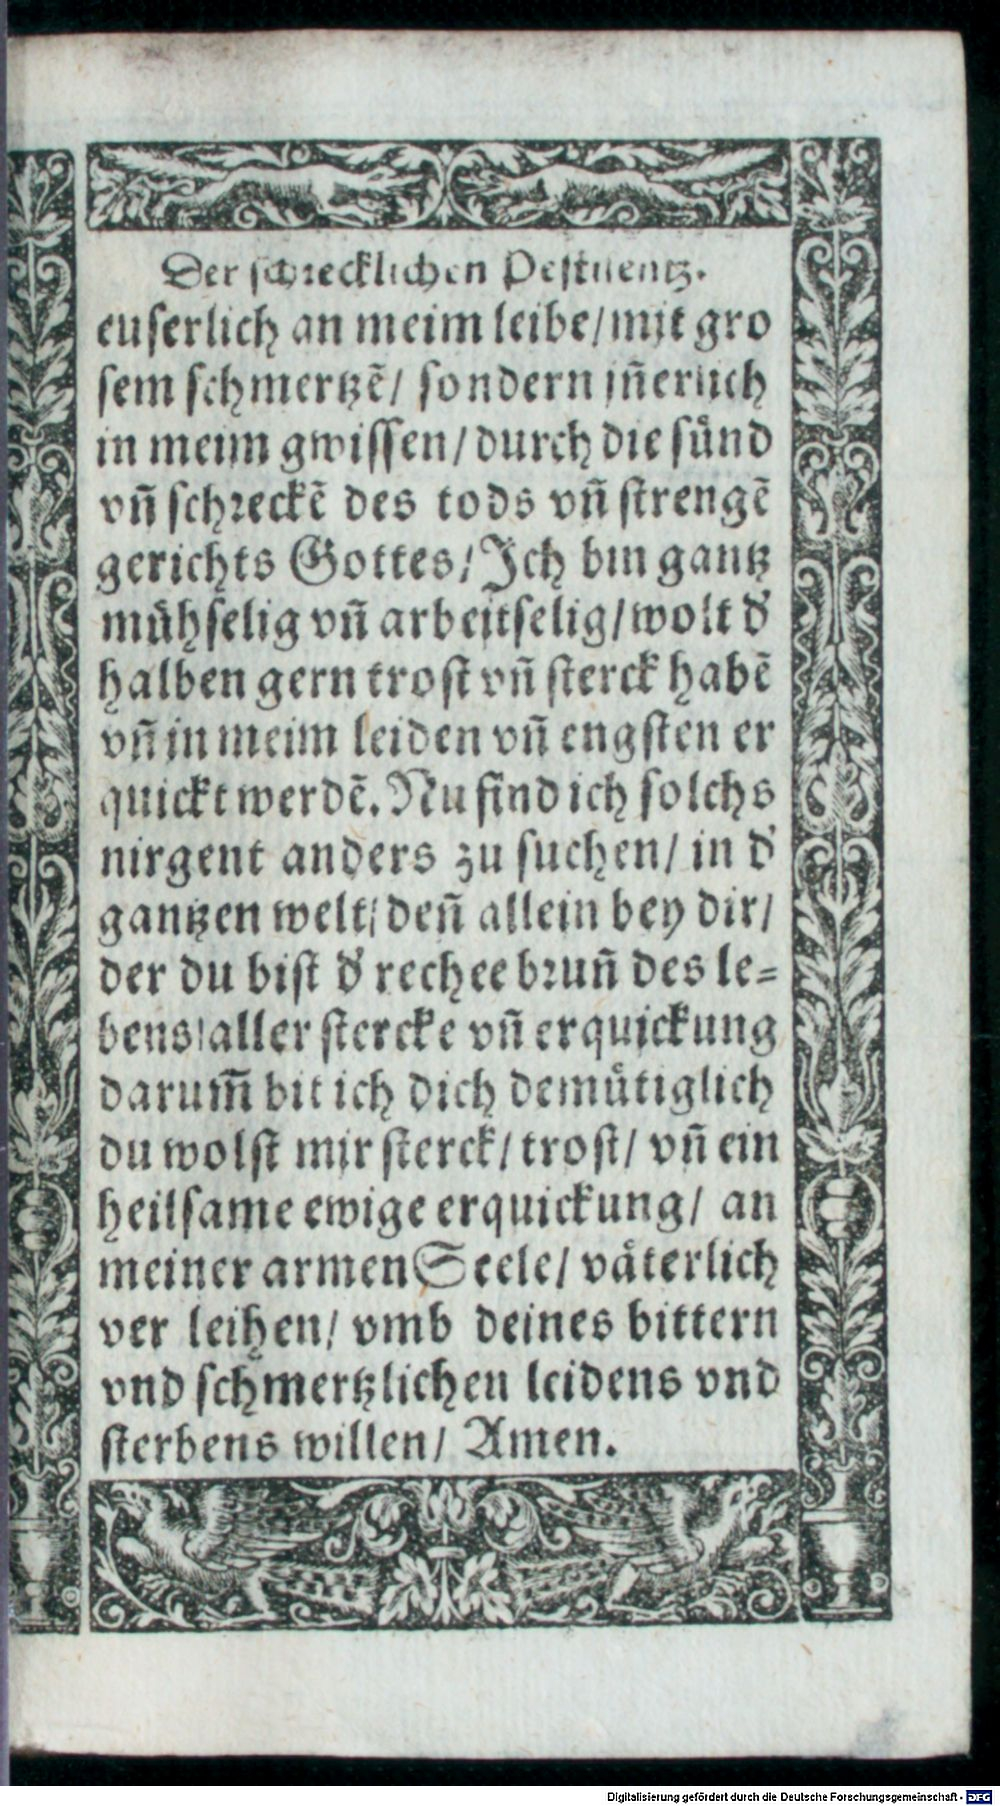 Der schrecklichen Pestilentz.
euſerlich an meim leibe/mit gro
ſem ſchmertzẽ/ ſondern jñerlich
in meim gwiſſen/durch die ſünd
vñ ſchreckẽ des tods vñ ſtrengẽ
gerichts Gottes/Ich bin gantz
mühſelig vñ arbeitſelig/wolt d̕
halben gern troſt vñ ſterck habẽ
vñ in meim leiden vñ engſten er
quickt werdẽ. Nu find ich ſolchs
nirgent anders zu ſuchen/ in d̕
gantzen welt/ deñ allein bey dir/
der du biſt d̕ rechee bruñ des le=
bens/aller ſtercke vñ erquickung
darum̃ bit ich dich demütiglich
du wolſt mir ſterck/ troſt/ vñ ein
heilſame ewige erquickung/ an
meiner armen Seele/ väterlich
ver leihen/ vmb deines bittern
vnd ſchmertzlichen leidens vnd
ſterbens willen/ Amen.
Digitalisierung gefördert durch die Deutsche Forschungsgemeinschaft - DFG